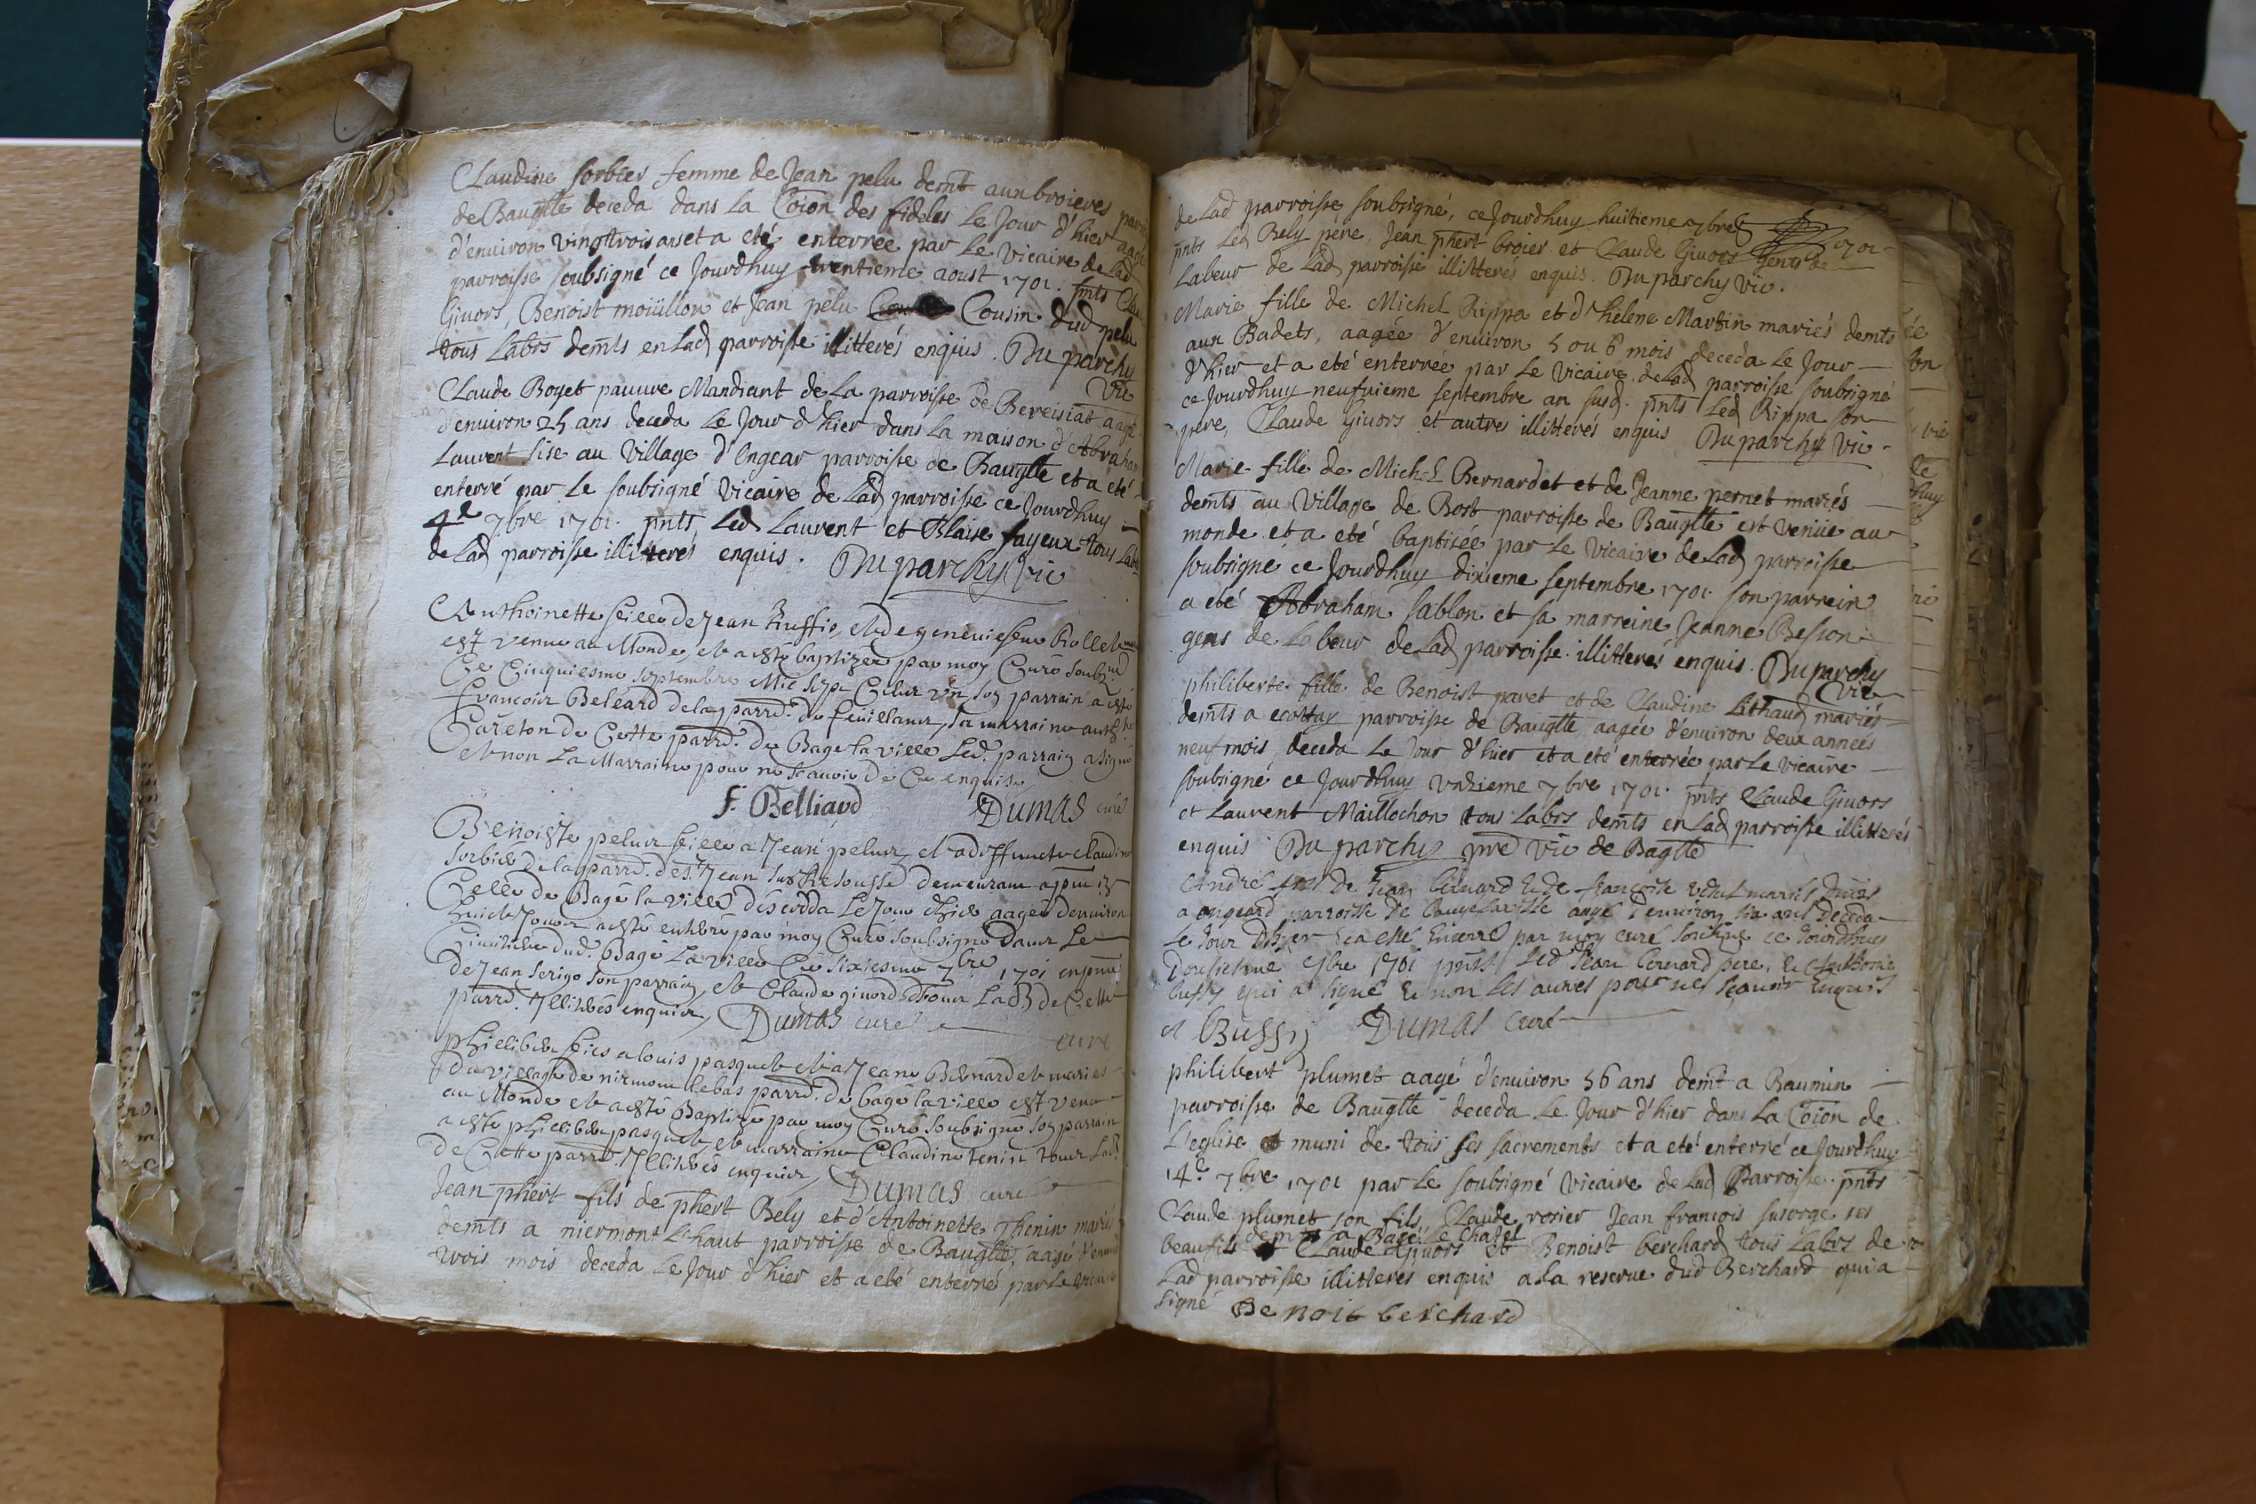 Claudine sorbier femme de Jean pelu demt aux broieres
de Baugtte deceda dans la Coion des fideles Le Jour d'hier aagée
d'environ vingttrois ans et a eté enterrée par Le vicaire de Lad
parroisse soubsigné ce Jourdhuy trentieme aoust 1701. pnts
Givors, Benoist moüillon et Jean pelu Cousin dud pelu
tous Labrs demts en Lad parroisse illitterés enquis. Du parchy
Vic
Claude Boyet pauvre Mandiant de La parroisse de Bereisiat aagé
d'environ 25 ans deceda Le Jour d'hier dans La maison d'Abraham
Laurent sise au village d'Ongear parroisse de Baugtte et a eté
enterré par Le soubsigné vicaire de Lad parroisse ce Jourdhuy
4e 7bre 1701. pnts Led Laurent et Blaise fayeux tous Labrs
de Lad parroisse illitterés enquis. Du parchy Vic
Anthoinette fille de Jean Ruffie, et de geneviefve
est venue au Monde, et a esté baptizée par moy Curé soubné
Ce Cinquiesme septembre Mil sept Centz un son parrain a esté
francois Beleard de la parrd. de feuillans, sa marraine
Careton de Cette parrd. de Bagé la ville Led. parrain a signé
et non La Marraine pour ne scavoir de Ce enquise
f. Belliard DUMAS curé
Benoiste pelux fille a Jean pelux et a deffuncte claudine
sorbier de la parrd. de St Jean sur Resousse demeurans
Celle de Bagé la ville desceda Le Jour d'hier aagée denviron
huict Jours a esté enterré par moy Curé soubsigné dans Le
Cimitiere dud. Bagé La ville Ce sixiesme 7bre 1701 en pnce
de Jean serigo son parrain et Claude givord tous Lab de Cette
parrd. Illitérés enquis, DUMAS curé
curé
philibert fils a louis pasquet et a Jeane Bernard et mariés
du village de nirmont le bas parrd. de bagé la ville est venu
au Monde et a esté Baptizé par moy Curé soubsigné son parrain
a esté philibert pasquet, et marraine Claudine tenin tous Lab
de Cette parrd. Illitérés enquis, DUMAS curé
Jean phert fils de phert Bely et d'Antoinette Thenin mariés
demts a niermont Le haut parroisse de Baugtte, aagé d'environ
trois mois deceda Le Jour d'hier et a eté enterré par Le vicaire
de Lad parroisse soubsigné, ce Jourdhuy huitieme 7bre 1701
pnts Led Bely père, Jean phert broier et Claude Givors gens de
Labeur de Lad parroisse illitterés enquis. Du parchy vic.
Marie fille de Michel Rippa et d'helene Martin mariés demts
aux Badets, aagée d'environ 5 ou 6 mois deceda Le Jour
d'hier et a eté enterrée par Le vicaire de Lad parroisse soubsigné
ce Jourdhuy neufvieme septembre an susd. pnts Led Rippa son
pere, Claude Givors et autres illitterés enquis Du parchy Vic.
Marie fille de Michel Bernardet et de Jeanne pernet mariés
demts au village de Bost parroisse de Baugtte est venüe au
monde et a eté baptisée par Le vicaire de Lad parroisse
soubsigné ce Jourdhuy dixieme septembre 1701. son parrein
a eté Abraham sablon et sa marreine Jeanne Besson
gens de Labeur de Lad parroisse illitterés enquis. Du parchy
Vic
philiberte fille de Benoist paret et de Claudine Lithaud mariés
demts a ecottay parroisse de Baugtte aagée d'environ deux années
neuf mois, deceda Le Jour d'hier et a eté enterrée par Le vicaire
soubsigné ce Jourdhuy vnzieme 7bre 1701. pnts Claude Givors
et Laurent Maillochon tous Labrs demts en Lad parroisse illitterés
enquis Du parchy pre vic de Bagtte
André fils de Jean bernard et de françoise mariés
a ongeard parroisse de baugé la ville aagé d'environ six ans deceda
Le Jour D'hyer et a esté Enterré par moy curé soubsigné ce Jourdhuy
Dousiesme 7bre 1701 pnts Led Jean bernard pere, et
bussy qui a signé et non Les autres pour ne sçavoir Enquis
Bussy DUMAS curé
philibert plumet aagé d'environ 56 ans demt a Baumin
parroisse de Baugtte deceda Le Jour d'hier dans La Coion de
L'eglise muni de tous ses sacrements et a eté enterré ce Jourdhuy
14e 7bre 1701 par Le soubsigné vicaire de Lad Parroisse pnts
Claude plumet son fils, Claude rosier Jean francois suserge ses
demts a Bagé Le chatel
beaufils Claude Givors et Benoist berchard tous Labrs de
Lad parroisse illitterés enquis a La reserve dud Berchard qui a
signé Benoit berchard